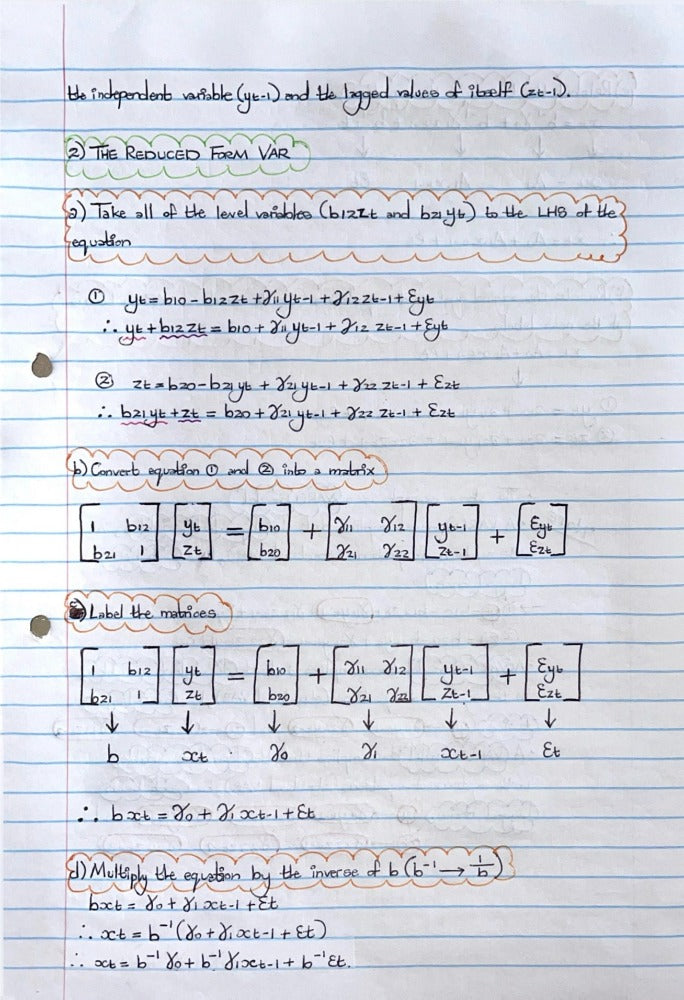 the independent variable (yt-1) and the lagged values of itself (zt-1).
2) THE REDUCED FORM VAR
a) Take all of the level variables (b12zt and b21yt) to the LHS of the
equation
① yt = b10 - b12zt + γ11yt-1 + γ12zt-1 + εyt
∴ yt + b12zt = b10 + γ11yt-1 + γ12 zt-1 + εyt
② zt = b20 - b21yt + γ21yt-1 + γ22 zt-1 + εzt
∴ b21yt + zt = b20 + γ21yt-1 + γ22 zt-1 + εzt
b) Convert equation ① and ② into a matrix
[1 b12] [yt] = [b10] + [γ11 γ12] [yt-1] + [εyt]
[b21 1] [zt] [b20] [γ21 γ22] [zt-1] [εzt]
) Label the matrices
[1 b12] [yt] = [b10] + [γ11 γ12] [yt-1] + [εyt]
[b21 1] [zt] [b20] [γ21 γ22] [zt-1] [εzt]
↓ ↓ ↓ ↓ ↓ ↓
b xt γ0 γ1 xt-1 εt
∴ bxt = γ0 + γ1xt-1 + εt
d) Multiply the equation by the inverse of b (b⁻¹ → 1/b)
bxt = γ0 + γ1xt-1 + εt
∴ xt = b⁻¹(γ0 + γ1xt-1 + εt)
∴ xt = b⁻¹γ0 + b⁻¹γ1xt-1 + b⁻¹εt.